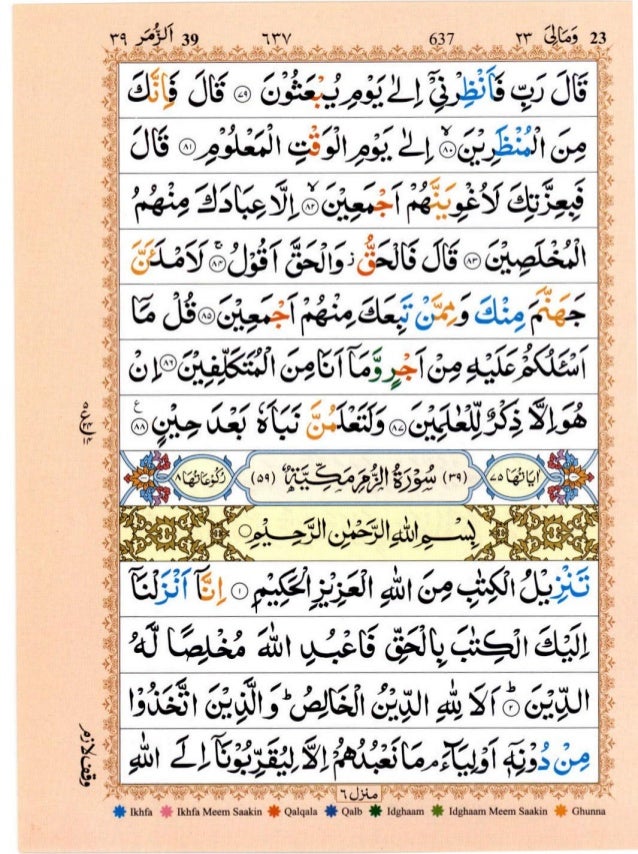 39 اَلزُّمَر ٣٩
٦٣٧
637
23 وَمَالِیَ ٢٣
قَالَ رَبِّ فَاَنْظِرْنِیْۤ اِلٰی یَوْمِ یُبْعَثُوْنَ ۝٧٩ قَالَ فَاِنَّكَ
مِنَ الْمُنْظَرِیْنَ ۝٨٠ۙ اِلٰی یَوْمِ الْوَقْتِ الْمَعْلُوْمِ ۝٨١ قَالَ
فَبِعِزَّتِكَ لَاُغْوِیَنَّهُمْ اَجْمَعِیْنَ ۝٨٢ۙ اِلَّا عِبَادَكَ مِنْهُمُ
الْمُخْلَصِیْنَ ۝٨٣ قَالَ فَالْحَقُّ ؗ وَالْحَقَّ اَقُوْلُ ۝٨٤ۚ لَاَمْلَـَٔنَّ
جَهَنَّمَ مِنْكَ وَمِمَّنْ تَبِعَكَ مِنْهُمْ اَجْمَعِیْنَ ۝٨٥ قُلْ مَاۤ
اَسْـَٔلُكُمْ عَلَیْهِ مِنْ اَجْرٍ وَّمَاۤ اَنَا مِنَ الْمُتَكَلِّفِیْنَ ۝٨٦ اِنْ
هُوَ اِلَّا ذِكْرٌ لِّلْعٰلَمِیْنَ ۝٨٧ وَلَتَعْلَمُنَّ نَبَاَهٗ بَعْدَ حِیْنٍ ۝٨٨ ع
اٰیَاتُهَا ٧٥
(٣٩) سُوْرَةُ الزُّمَرِ مَكِّیَّةٌ (٥٩)
رُكُوْعَاتُهَا ٨
بِسْمِ اللهِ الرَّحْمٰنِ الرَّحِیْمِ ۝
تَنْزِیْلُ الْكِتٰبِ مِنَ اللهِ الْعَزِیْزِ الْحَكِیْمِ ۝١ اِنَّاۤ اَنْزَلْنَاۤ
اِلَیْكَ الْكِتٰبَ بِالْحَقِّ فَاعْبُدِ اللهَ مُخْلِصًا لَّهُ
الدِّیْنَ ۝٢ؕ اَلَا لِلّٰهِ الدِّیْنُ الْخَالِصُ ؕ وَالَّذِیْنَ اتَّخَذُوْا
مِنْ دُوْنِهٖۤ اَوْلِیَآءَ ۘ مَا نَعْبُدُهُمْ اِلَّا لِیُقَرِّبُوْنَاۤ اِلَی اللهِ
وقف لازم
منزل ٦
Ikhfa Ikhfa Meem Saakin Qalqala Qalb Idghaam Idghaam Meem Saakin Ghunna